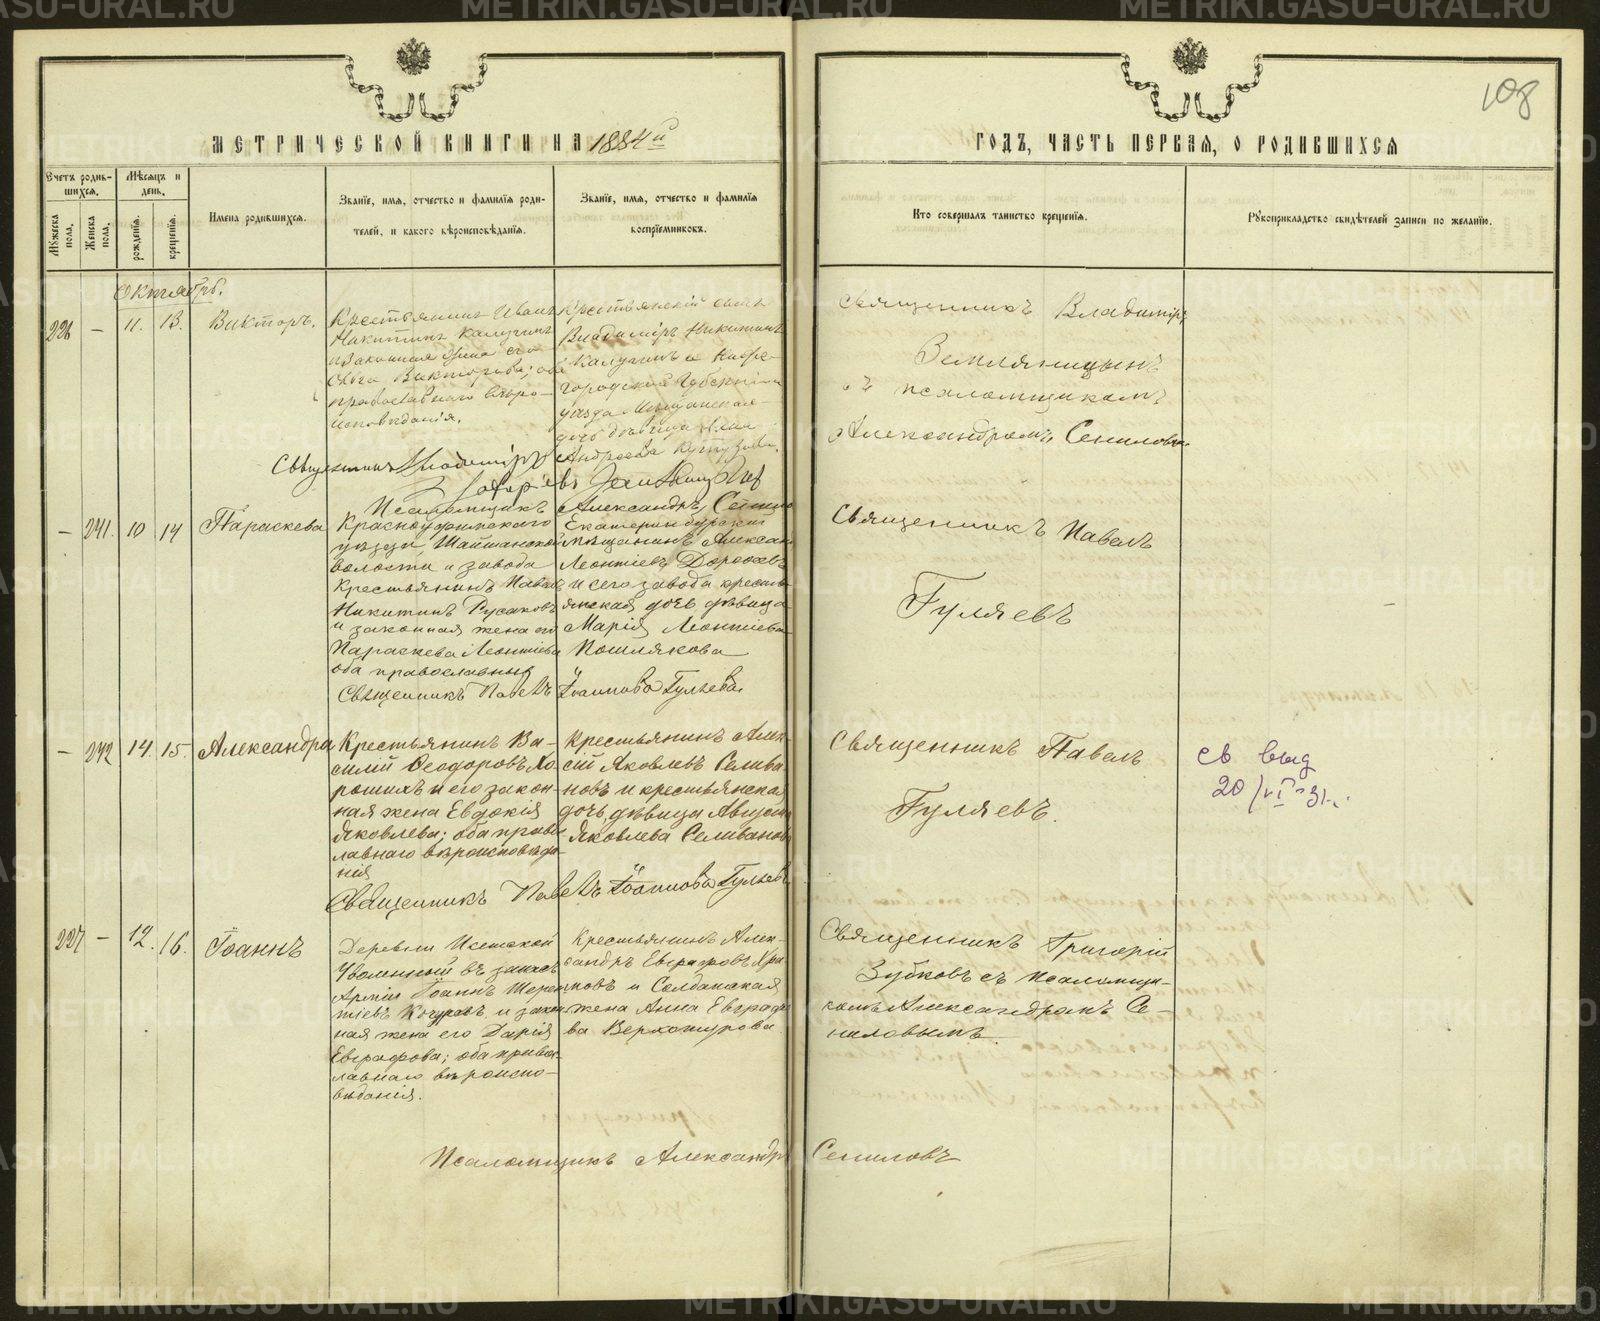 108
МЕТРИЧЕСКОЙ КНИГИ НА 1884й
ГОДЪ, ЧАСТЬ ПЕРВАЯ, О РОДИВШИХСЯ
Счетъ родив-
шихся.
Мужеска пола.
Женска пола.
Мѣсяцъ и
день.
рожденія.
крещенія.
Имена родившихся.
Званіе, имя, отчество и фамилія роди-
телей, и какого вѣроисповѣданія.
Званіе, имя, отчество и фамилія
воспріемниковъ.
Кто совершалъ таинство крещенія.
Рукоприкладство свидѣтелей записи по желанію.
Октябрь.
226 – 11. 13. Викторъ.
Крестьянинъ Иванъ
Никитинъ Калугинъ
и законная жена его
Викторова; оба
православнаго вѣро-
исповѣданія.
Крестьянскій сынъ
Владимиръ Никитинъ
Калугинъ и
городской Губерніи
уѣзда Мѣщанская
дочь дѣвица
Андреева
Священникъ Владимиръ
Псаломщикъ Александръ
Священникъ Владимиръ
Земляницынъ
съ псаломщикомъ
Александромъ Сениловы
– 241. 10 14 Параскева
Красноуфимскаго
уѣзда, Шайтанской
волости и завода
Крестьянинъ Павелъ
Никитинъ Русаковъ
и законная жена его
Параскева Леонтіева
оба православные
Екатеринбургскій
мѣщанинъ Алексан
Леонтіевъ Дорофеевъ
и сего завода кресть-
янская дочь дѣвица
Марія Леонтіева
Пошлякова
Священникъ Павелъ Іоанновъ Гуляевъ
Священникъ Павелъ
Гуляевъ
– 242 14. 15. Александра
Крестьянинъ Ва-
силій Ѳеодоровъ Хо-
рошихъ и его закон-
ная жена Евдокія
Яковлева; оба право-
славнаго вѣроисповѣда-
нія
Крестьянинъ Алек-
сій Яковлевъ Селива-
новъ и крестьянская
дочь, дѣвица Августа
Яковлева Селиванова
Священникъ Павелъ Іоанновъ Гуляевъ
Священникъ Павелъ
Гуляевъ.
св выд
20/VI-31 г.
227 – 12. 16. Іоаннъ
Деревни Исетской
Уволенный въ запасъ
Арміи Іоаннъ Терен-
тіевъ и закон-
ная жена его Дарія
Евграфова; оба право-
славнаго вѣроиспо-
вѣданія.
Крестьянинъ Алек-
сандръ Евграфовъ Хра-
мовъ и Солдатская
жена Анна Евграфо-
ва Верхотурова
Священникъ Григорій
Зубковъ съ Псаломщи-
комъ Александромъ Се-
ниловымъ.
Псаломщикъ Александръ Сениловъ
METRIKI.GASO-URAL.RU